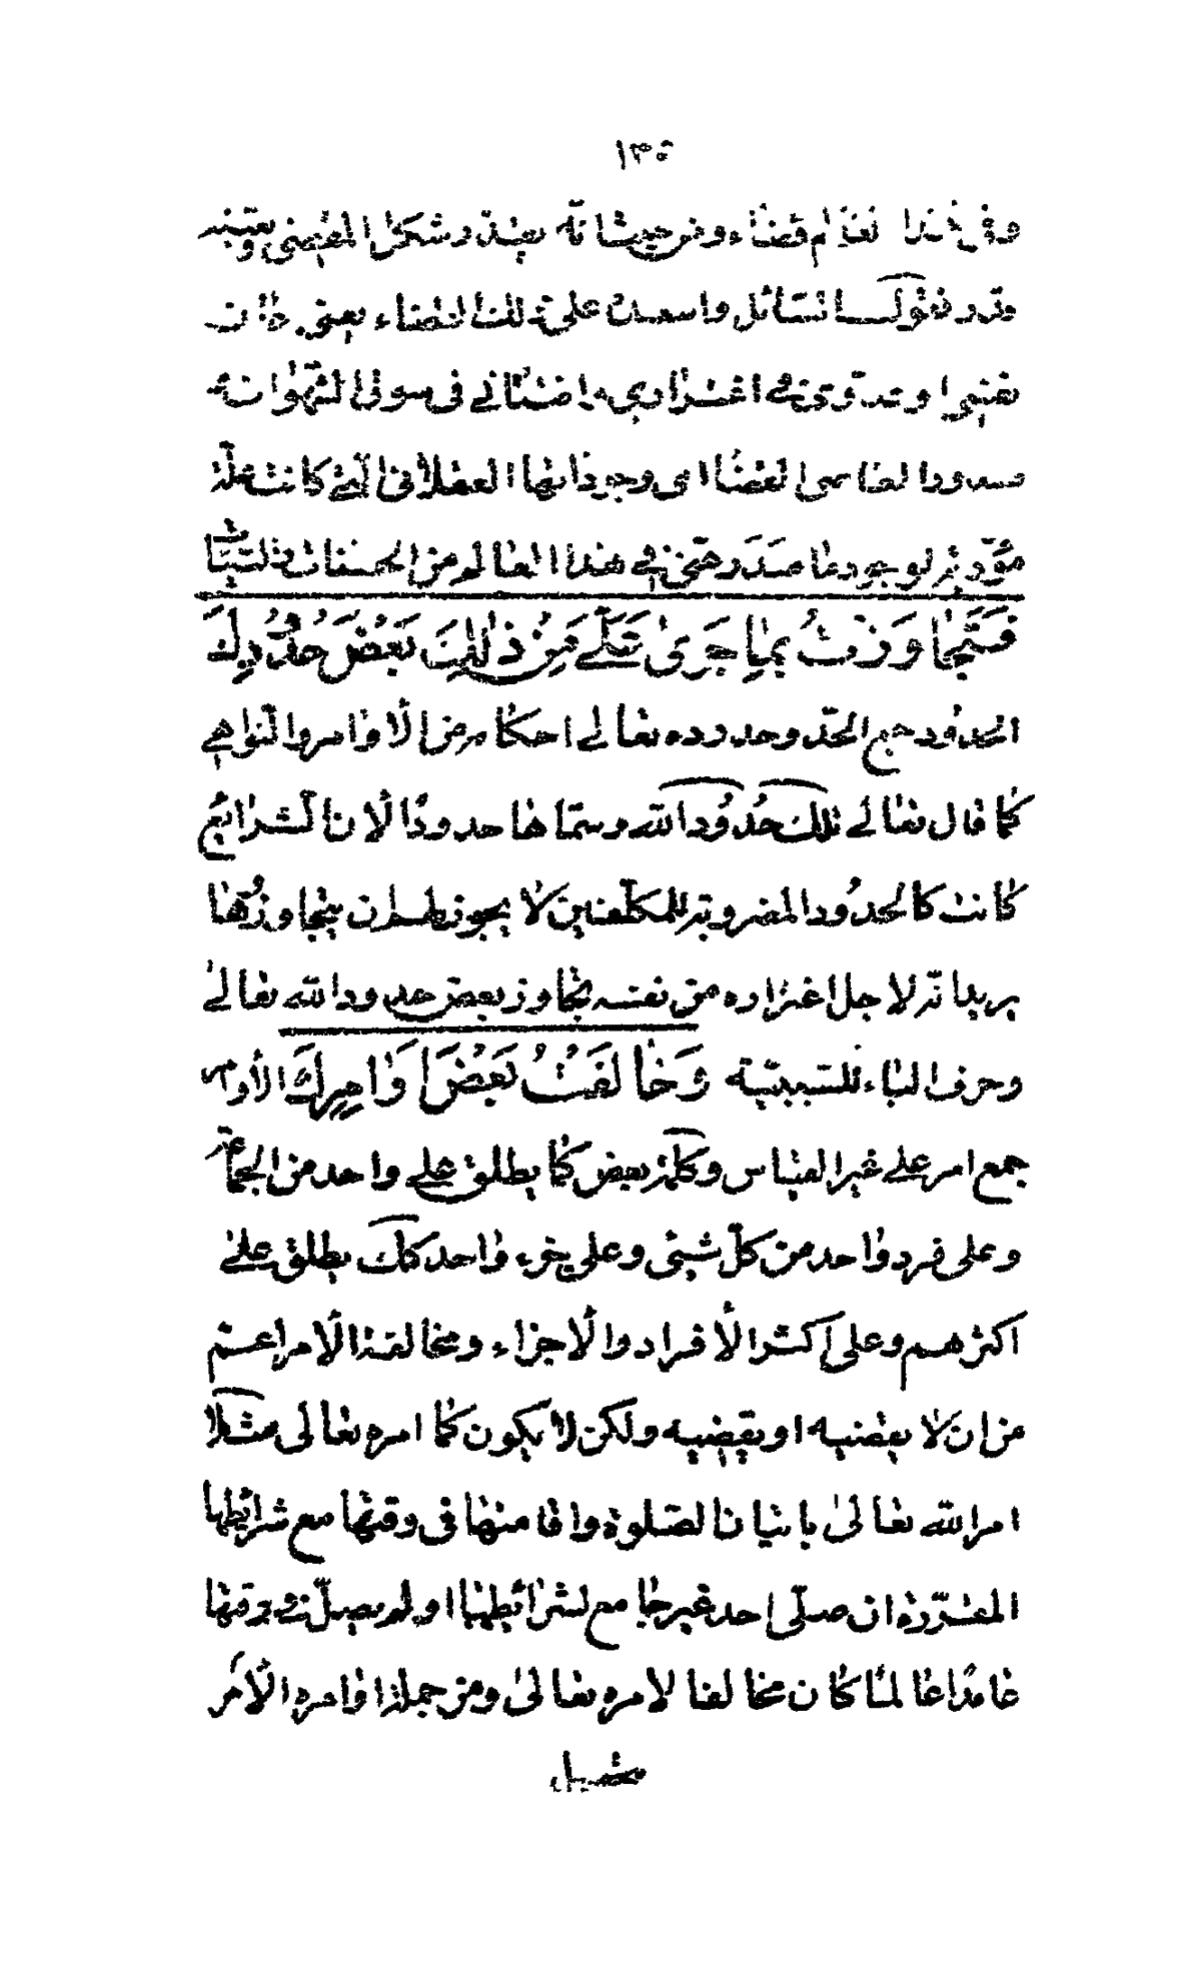 ١٣٠
وفي هذا العالم قضاء ومن حيث انه يقيد وشكل المقضي ويعينه
قدر فقول السائل واسعده على ذلك القضاء يعني كان
نفسي وعدوي في اغتراري وافتتاني في سوق الشهوات
مسعودا لقاسم القضاء اي وجوداتها العقلانية التي كانت علة
مؤدية لوجود ما صدر مني في هذا العالم من الحسنات والسيئات
فَتَجاوَزْتُ بِما جَرى عَلَيَّ مِنْ ذٰلِكَ بَعْضَ حُدُودِكَ
الحدود جمع الحد وحدوده تعالى احكامه من الاوامر والنواهي
كما قال تعالى تلك حُدُود الله وسمّاها حدودًا لان الشرايع
كانت كالحدُود المضروبة للمكلفين لا يجوز لهم ان يتجاوزُوها
يريد انه لاجل اغتراره من نفسه تجاوز بعض حدود الله تعالى
وحرف الباء للسببية وَخالَفْتُ بَعْضَ اَوامِرِكَ الأوامر
جمع امر على غير القياس وكلمة بعض كما يطلق على واحد من الجماعة
وعلى فرد واحد من كلّ شيئ وعلى جزء واحد كك يطلق على
اكثرهم وعلى اكثر الأفراد والأجزاء ومخالفة الأمر اعم
من ان لا يقضيه او يقضيه ولكن لا يكون كما امره تعالى مثلا
امر الله تعالى باتيان الصلوة واقامتها في وقتها مع شرائطها
المقررة ان صلّى احد غير جامع لشرائطها او لم يصلّ في وقتها
عامدًا عالمًا كان مخالفا لامره تعالى ومن جملة اوامره الأمر
بتحصيل